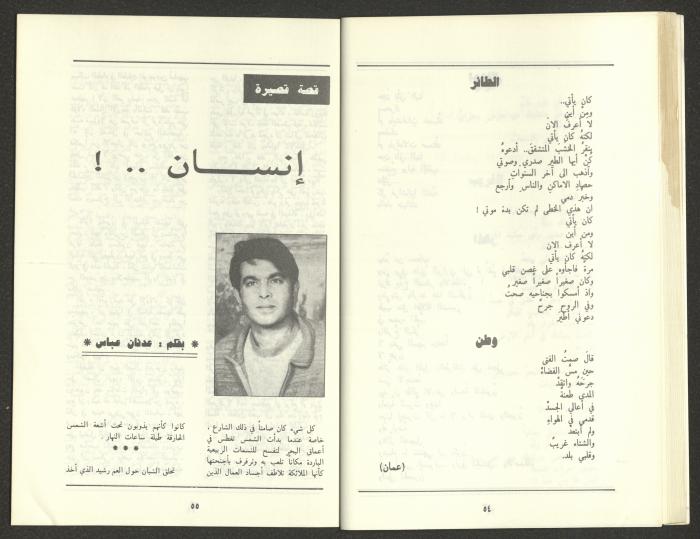 الطائر
كان يأتي..
ومن أين
لا أعرف الان
لكنه كان يأتي
ينقر الخشب المتشقق.. أدعوه
كن أيها الطير صدري وصوتي
وأذهب الى آخر السنوات
حصاد الاماكن والناس وأرجع
وخبر دمي
ان هذي الخطى لم تكن بدء موتي !
كان يأتي
ومن أين
لا أعرف الان
لكنه كان يأتي
مرة فاجأوه على غصن قلبي
وكان صغيراً صغيراً صغير
واذ أمسكوا بجناحيه صحت
وفي الروح جرح
دعوني أطير
وطن
قال صمت الفتى
حين مس الفضاء
جرحه واتقد
المدي طعنة
في أعالي الجسد
قدمي في الهواء
ولم أبتعد
والشتاء غريب
وقلبي بلد.
(عمان)
٥٤
قصة قصيرة
إنسان .. !
* بقلم : عدنان عباس *
كل شيء كان صامتاً في ذلك الشارع ،
خاصة عندما بدأت الشمس تغطس في
أعماق البحر لتفسح للنسمات الربيعية
الباردة مكاناً تلعب به وترفرف بأجنحتها
كأنها الملائكة تلاطف أجساد العمال الذين
كانوا كأنهم يذوبون تحت أشعة الشمس
الحارقة طيلة ساعات النهار .
* * *
تحلق الشبان حول العم رشيد الذي أخذ
٥٥